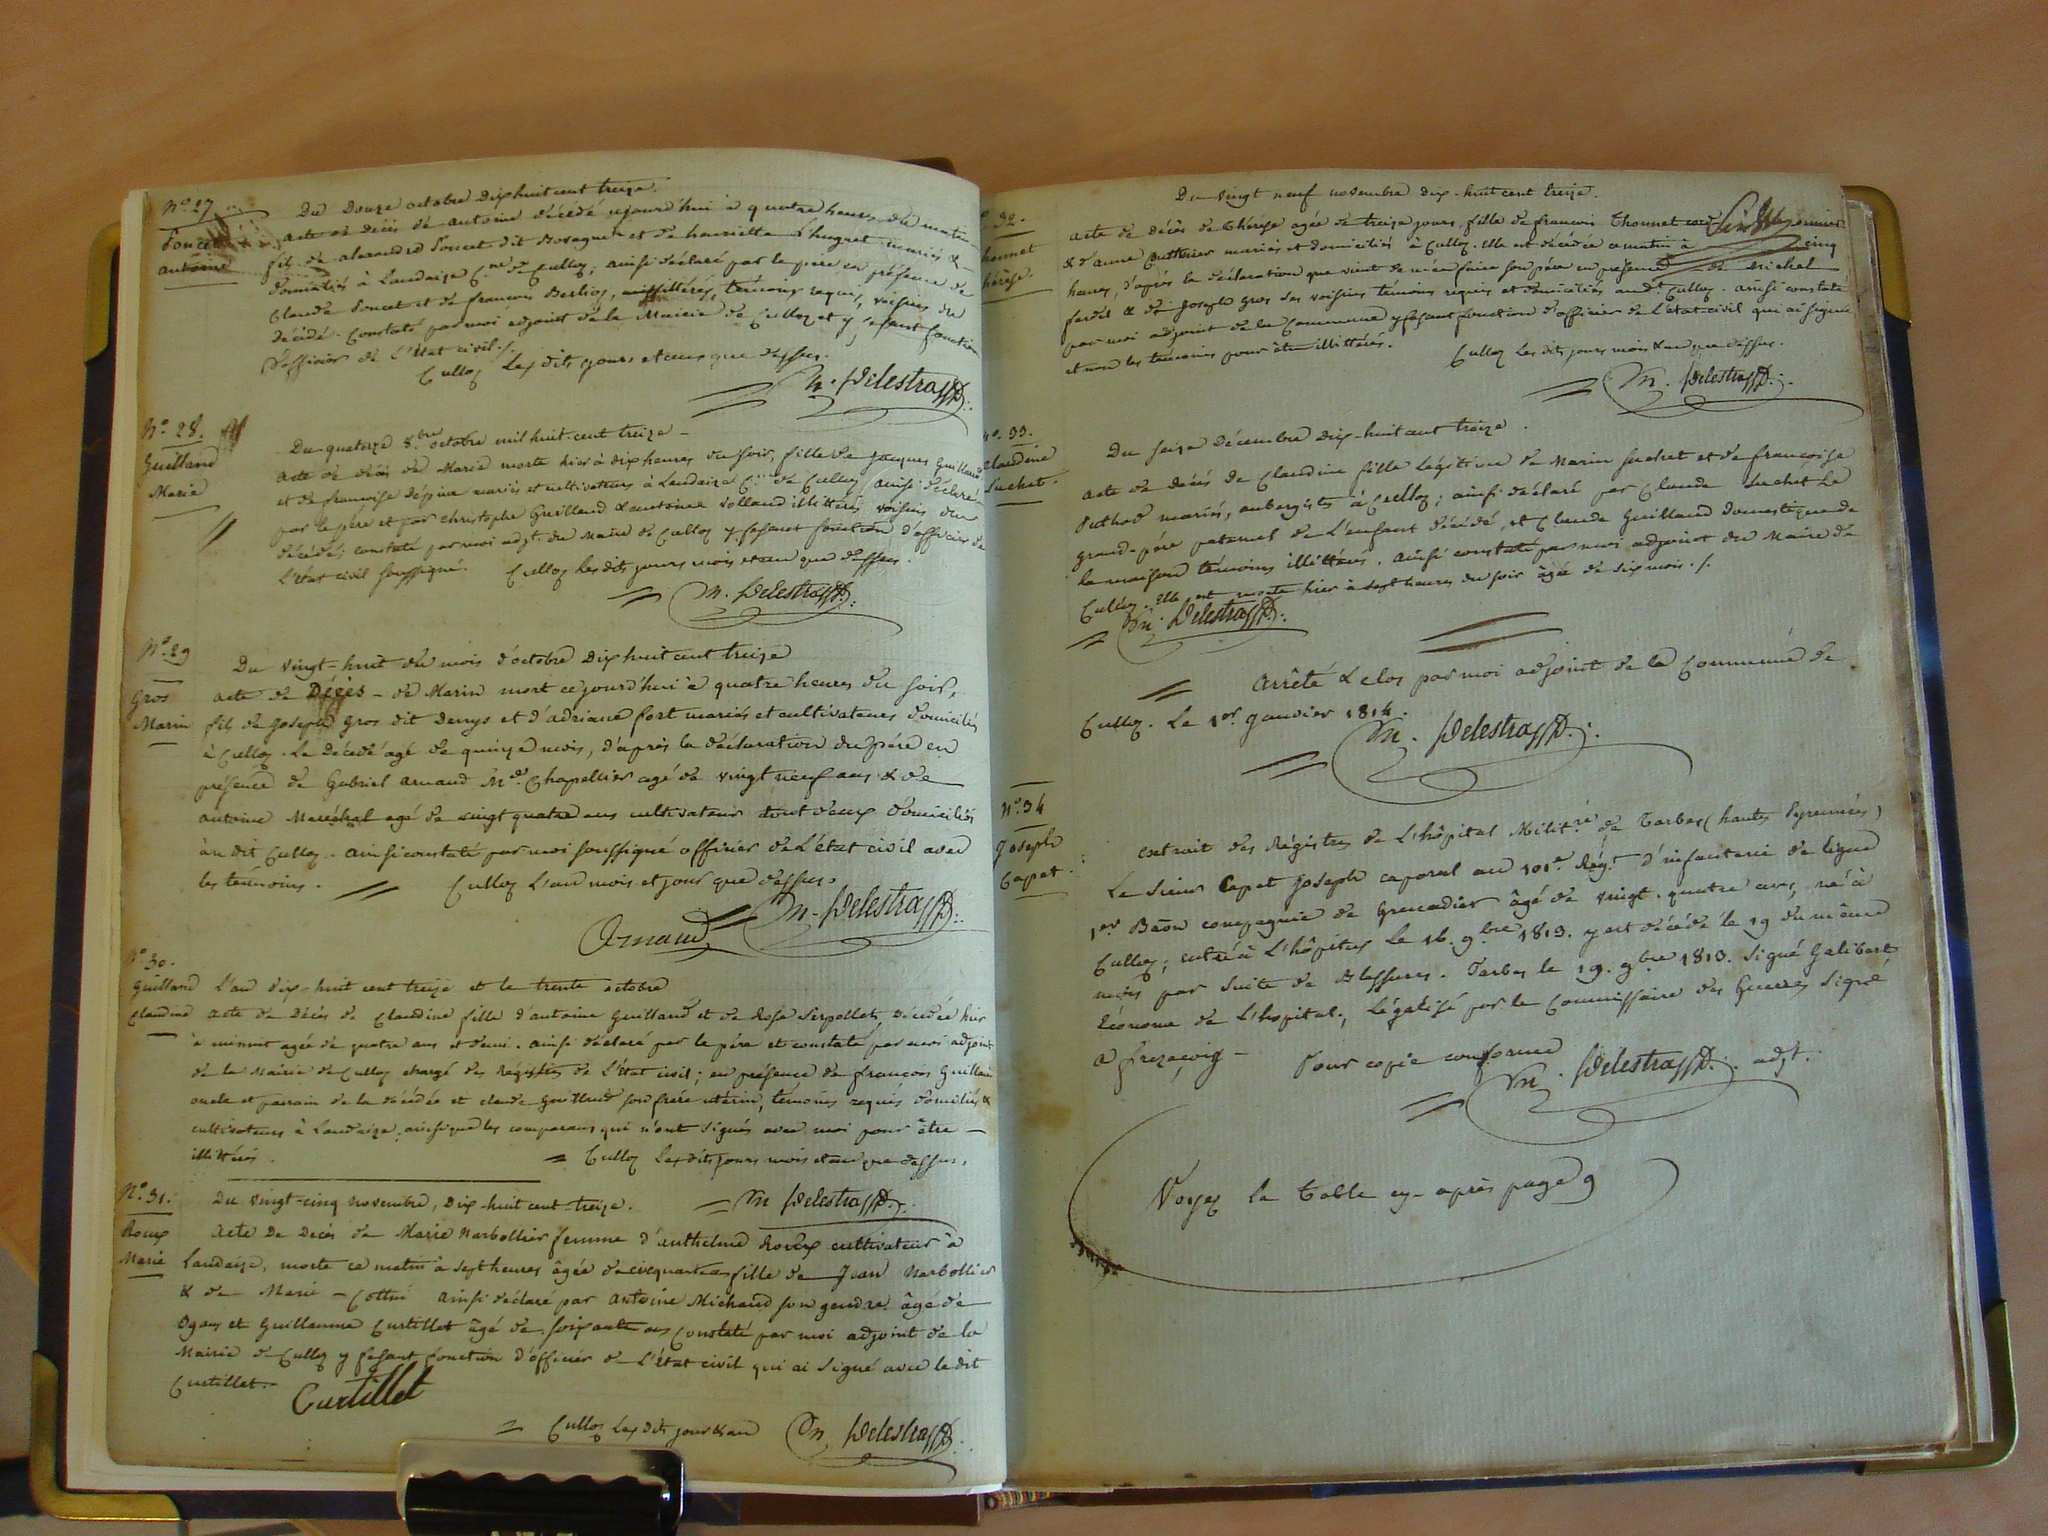 N.º 27
Poncet
antoine
Du Douze octobre dix huit cent treize.
acte de décès de antoine décédé aujourd'hui à quatre heures du matin
fils de alexandre Poncet dit et de henriette huguet mariés &
domiciliés à Landaize C.ne de Culloz, ainsi déclaré par le père en présence de
Claude Poncet et de françois Berlioz, illitérés, témoins requis, voisins du
décédé. Constaté par moi adjoint de la Mairie de Culloz et y fesant fonction
d'officier de l'état civil ./.
Culloz les dits jours et ans que dessus.
M. Delestra
N.º 28.
Guilland
Marie
Du quatorze 8.bre octobre mil huit-cent treize –
acte de décès de Marie morte hier à dix heures du soir, fille de Jacques Guilland
et de françoise mariés et cultivateurs à Landaize C.ne de Culloz ainsi déclaré
par le père et par christophe Guilland & antoine Rolland illittérés voisins du
décédé; constaté par moi adj.t du Maire de Culloz y fesant fonction d'officier de
l'état civil soussigné. Culloz les dits jours mois et an que dessus.
M. Delestra
N.º 29
Gros
Marin
Du vingt-huit du mois d'octobre Dix huit cent treize
acte de Décès – de Marin mort cejourd'hui à quatre heures du soir,
fils de Joseph Gros dit Denys et d'adriane fort mariés et cultivateurs domiciliés
à Culloz. Le décédé agé de quinze mois, d'après la déclaration du père en
présence de Gabriel arnaud M.d Chapellier agé de vingt neuf ans & de
antoine Maréchal agé de vingt quatre ans cultivateur tout deux domiciliés
au dit Culloz. ainsi constaté par moi soussigné officier de l'état civil avec
les témoins. Culloz l'an mois et jour que dessus.
Arnaud M. Delestra
N.º 30.
Guilland
Claudine
L'an dix-huit cent treize et le trente octobre
acte de décès de Claudine fille d'antoine Guilland et de Rose Serpollet décédée hier
à minuit agée de quatre ans et demi. ainsi déclaré par le père et constaté par moi adjoint
de la Mairie de Culloz chargé des Régistres de l'état civil; en présence de françois Guilland
oncle et parrain de la décédée et claude Guilland son frère utérin, témoins requis domiciliés &
cultivateurs à Landaize, ainsi que les comparans qui n'ont signés avec moi pour être –
illittérés. = Culloz les dits jours mois et an que dessus.
M Delestra
N.º 31.
Roux
Marie
Du vingt-cinq novembre, dix-huit cent-treize.
Acte de Décès de Marie Narbollier femme d'anthelme Roux cultivateur à
Landaize, morte ce matin à sept heures âgée de cinquante ans fille de Jean Narbollier
& de Marie – Cottin ainsi déclaré par antoine Michaud son gendre âgé de
ans et Guillaume Curtillet âgé de soixante ans constaté par moi adjoint de la
Mairie de Culloz y fesant fonction d'officier de l'état civil qui ai signé avec le dit
Curtillet. Curtillet
= Culloz les dits jour & an M. Delestra
32.
Du vingt neuf novembre dix-huit cent treize.
acte de décès de thérèse agée de treize jours, fille de françois Thonnet
& d'anne mariés et domiciliés à Culloz. Elle est décédée ce matin à cinq
heures, d'après la déclaration que vient de m'en faire son père en présence de Michel
& de Joseph Gros ses voisins témoins requis et domiciliés au d.t Culloz. ainsi constaté
par moi adjoint de la Commune y fesant fonction d'officier de l'état-civil qui ai signé
et non les témoins pour être illittérés. Culloz les dits jours mois & an que dessus.
M. Delestra
N.º 33.
Claudine
Suchet.
Du seize Décembre dix-huit cent treize.
acte de décès de Claudine fille légitime de Marin Suchet et de françoise
Puthod mariés, aubergiste à Culloz; ainsi déclaré par Claude Suchet le
grand-père paternel de l'enfant décédé, et Claude Guilland domestique de
la maison témoins illittérés. ainsi constaté par moi adjoint du Maire de
Culloz. Elle est morte hier à sept heures du soir âgée de six mois ./.
M. Delestra
arrêté & clos par moi adjoint de la Commune de
Culloz. Le 1.er Janvier 1814.
M. Delestra
N.º 34
Joseph
Capet.
extrait des Régistres de l'hôpital Milit.re de Tarbes (hautes Pyrennées)
Le Sieur Capet Joseph caporal au 101.e Rég.t d'infanterie de ligne
1.er Baon compagnie de Grenadier âgé de vingt-quatre ans, né à
Culloz; entré à l'hôpital le 16. 9.bre 1813. y est décédé le 19 du même
mois par suite de Blessures. Tarbes le 19. 9.bre 1813. signé Galibert
Econome de l'hopital, Légalisé par le Commissaire des Guerres signé
Pour copie conforme M. Delestra adj.t.
Voyez la Table cy-après page 9